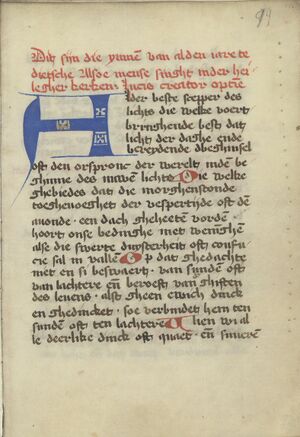 94
Dit sijn die ymnen van alden iare te
dietsche Alsoe mense singht inder hei
legher kerken. Lucis creator optie
Alder beste scepper des
lichts die welke voert
bringhende best dat
licht der daghe ende
bereydende dbeghinsel
ost den orspronc der werelt inde be
ghinne des nuwen lichts Die welke
ghebiedes dat die morghenstonde
toeghenoeghet der vespertijt ost den
auonde . een dach gheheeten worde .
hoort onse bedinghe met weninghe
alse die swerte duysterheit ost confu
cie sal in vallen Op dat ghedachte
met en si beswaert . van sunden ost
van lachtere en beroest van ghiften
des leuens . alst gheen ewich dinck
en ghedincket . soe verbindet hem ten
sunden ost ten lachtere Allen wi al
le deerlike dinck ost quaet . en suueren